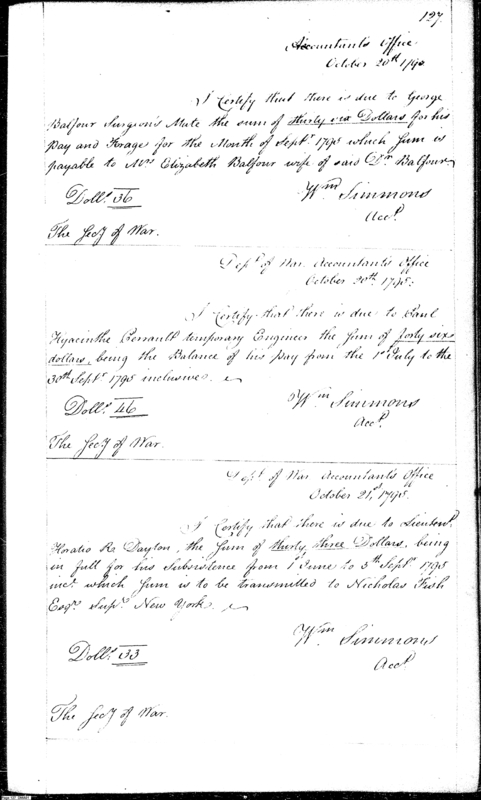 127.
Accountant's Office
October 20th 1795
I Certify that there is due to George
Balfour Surgeon's Mate the sum of thirty six Dollars for his
Pay and Forage for the Month of Septr. 1795 which Sum is
payable to Mrs Elizabeth Balfour wife of said Dr Balfour
Dolls. 36
Wm Simmons
Acct.
The Secy of War.
Dept. of War Accountant's Office
October 20th. 1795.
I Certify that there is due to Paul
Hyacinthe Perrault temporary Engineer the Sum of forty six
dollars, being the Balance of his pay from the 1st July to the
30th Septr 1795 inclusive.
Dolls. 46
Wm Simmons
Acct.
The Secy of War.
Dept. of War Accountant's Office
October 21st, 1795.
I Certify that there is due to Lieutent.
Horatio Ra Dayton, the Sum of thirty three Dollars, being
in full for his Subsistence from 1st June to 5th Septr. 1795
incl. which Sum is to be transmitted to Nicholas Fish
Esqr. Supr. New York.
Dolls. 33
Wm Simmons
Acct.
The Secy of War.